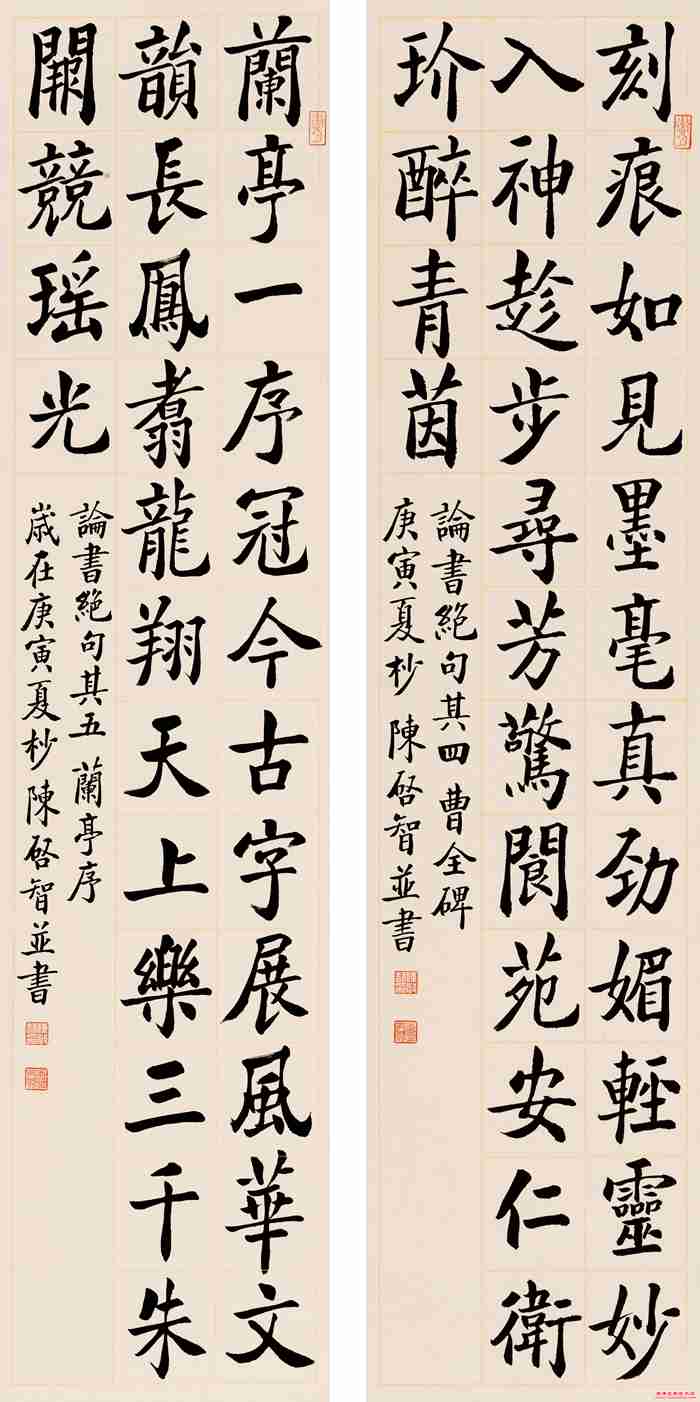 刻痕如見墨毫真勁媚輕靈妙
入神趁步尋芳驚閬苑安仁衛
玠醉青茵
論書絕句其四 曹全碑
庚寅夏杪 陳啓智並書
蘭亭一序冠今古字展風華文
韻長鳳翥龍翔天上樂三千朱
闕競瑤光
論書絕句其五 蘭亭序
歲在庚寅夏杪陳啓智並書